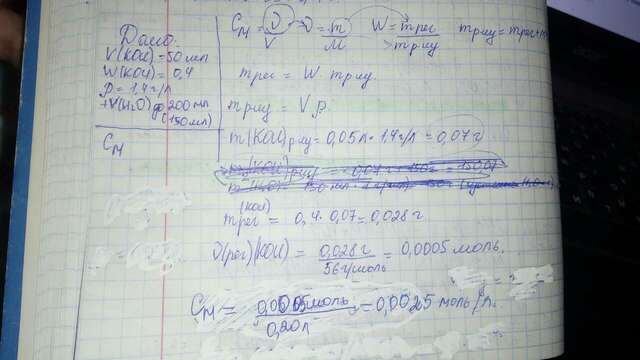 Дано:
V(KOH) = 50 мл
W(KOH) = 0,4
ρ = 1,4 г/л
+V(H₂O) до 200 мл
(150 мл)
C_M
C_M = ν/V ν = m/M W = m рег / m рлу m рлу = m рег + m
m рег = W · m рлу.
m рлу = V · ρ.
m(KOH) рлу = 0,05 л · 1,4 г/л = 0,07 г
(KOH)
m рег = 0,4 · 0,07 = 0,028 г
ν(рег)(KOH) = 0,028 г / 56 г/моль = 0,0005 моль.
C_M = 0,0005 моль / 0,20 л = 0,0025 моль/л.